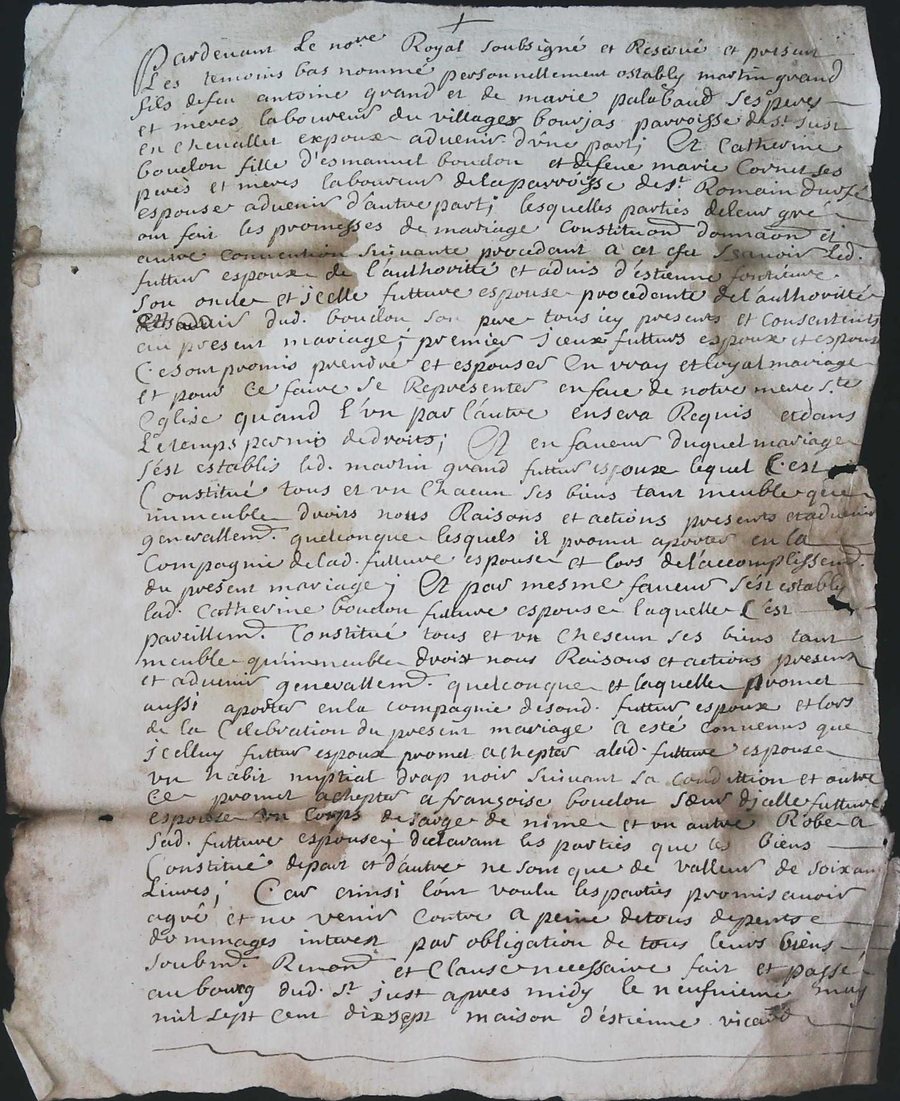 Pardevant Le no.re Royal soubsigné et Reservé et present
Les temoins bas nommé personnellement establÿ martin grand
fils defeu antoine grand et de marie palabaud ses peres
et meres laboureur du villages boujas parroisse de s.t Just
en chevallet expoux advenir d'une part; Et Catherine
boudon fille d'esmanuel boudon et defeue marie Cornet ses
peres et meres laboureur delaparroisse de s.t Romain durfé
espouse advenir d'autre part; lesquelles parties deleur gré
ont fait les promesses de mariage Constitution donnaon et
autre Convention suivante procedant a cet efet scavoir Led.
futtur espoux de l'authoritté et advis d'estienne
son oncle et jcelle futture espouse procedante de l'authoritté
dud. boudon son pere tous icy presents et Consentents
au present mariage; premier jceux futturs espoux et espouse
C'esont promis prendre et espouser En vray et loyal mariage
et pour ce faire se Representer enface de notre mere s.te
Eglise quand L'vn par l'autre ensera Requis etdans
Letemps permis dedroits; Et en faveur duquel mariage
s'est establis led. martin grand futtur espoux lequel C'est
Constitué tous et vn Chacun ses biens tant meuble que
immeuble droits nous Raisons et actions presents et advenir
generallem.t quelconque lesquels il promet aporter en la
Compagnie delad. futture espouse et lors del'accomplissem.t
du present mariage; Et par mesme faveur s'est establis
lad. Catherine boudon futture espouse laquelle C'est
pareillem.t Constitué tous et vn cheseun ses biens tant
meuble qu'immeuble droix nous Raisons et actions present
et advenir generallem.t quelconque et laquelle promet
aussi aporter enla compagnie desond. futtur espoux et lors
de la Celebration du present mariage a esté convenus que
jcelluy futtur espoux promet achepter alad. futture espouse
vn habit nuptial drap noir suivant sa condittion et outre
ce promet achepter a françoise boudon sœur d'jcelle futture
espouse vn corps desarge de nime et vn autre Robe a
sad. futture espouse; declarant les parties que les biens
Constitué depart et d'autre ne sont que de valleur de soixan
Livres; Car ainsi lont voulu les parties promis avoir
agré et ne venir Contre a peine detous depents
dommages interest par obligation de tous leurs biens
soubm.t Renon.t et Clause necessaire fait et passé
aubourg dud. s.t just apres midy le neufvieme may
mil sept cent dixsept maison d'estienne vicaud